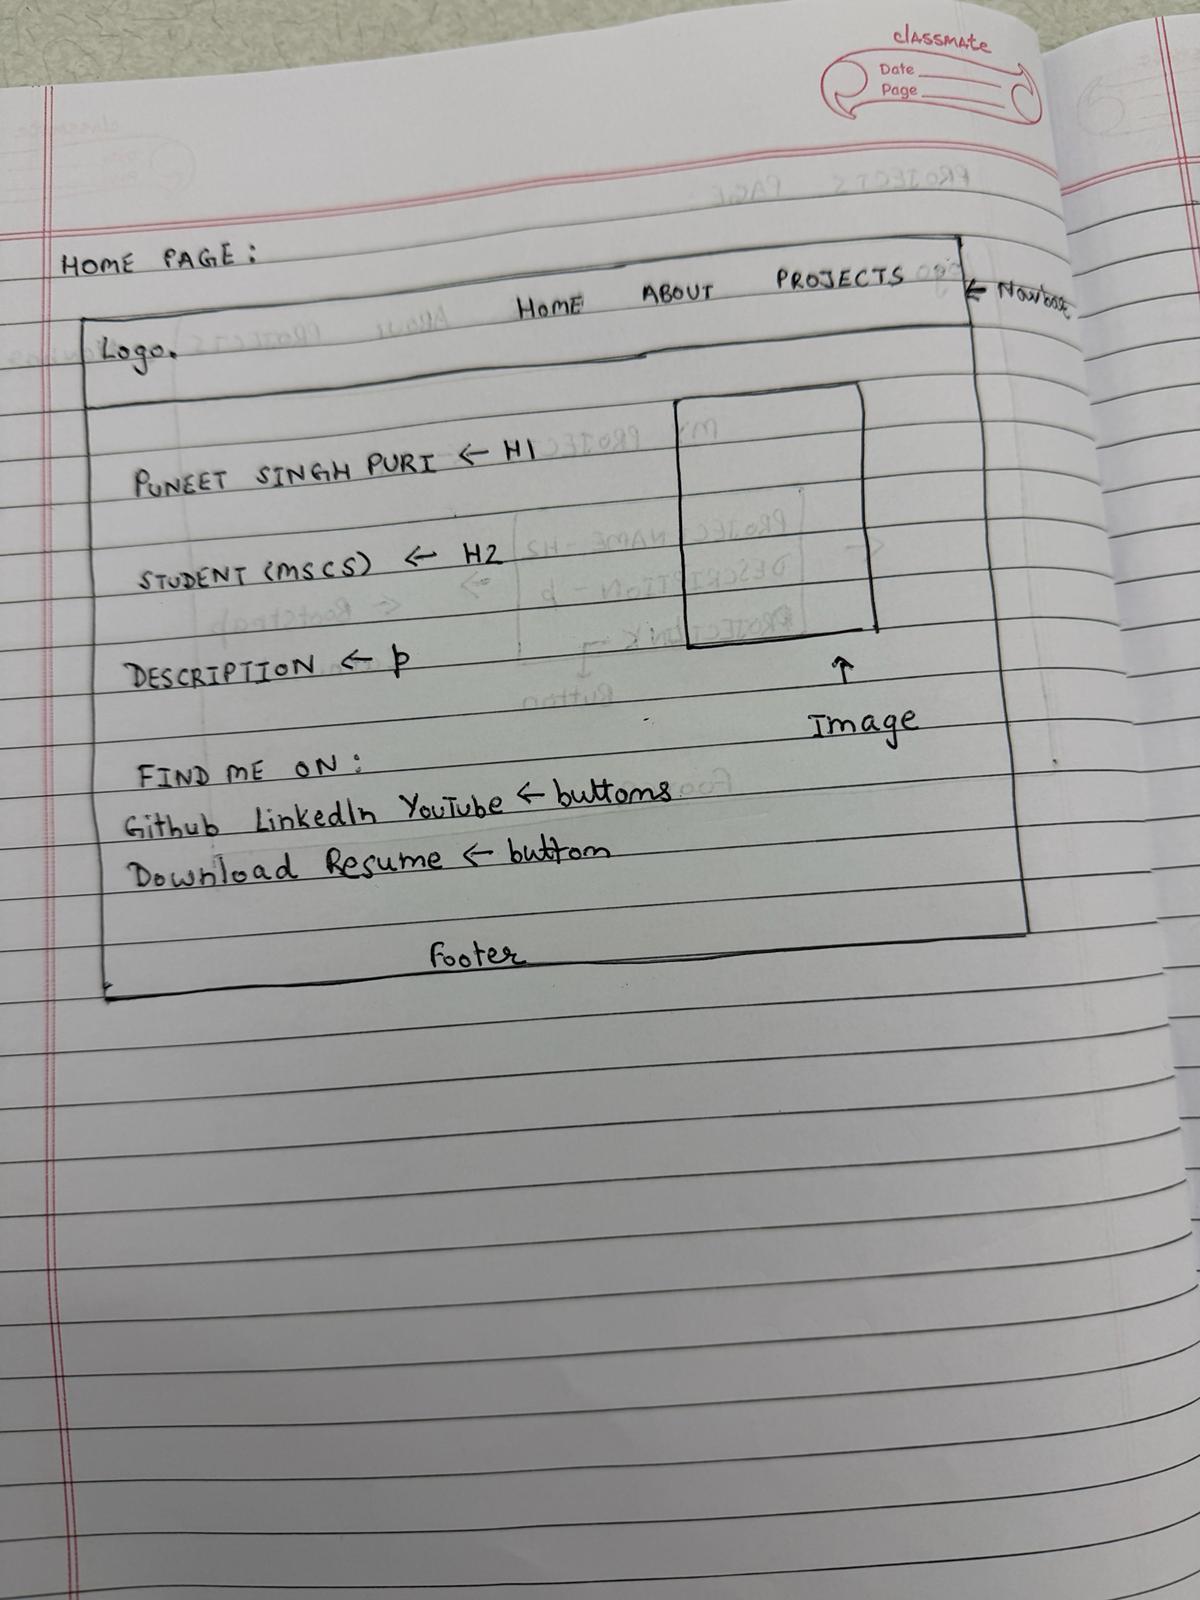 classmate
Date
Page
HOME PAGE:
Logo. Home ABOUT PROJECTS ← Navbar
PUNEET SINGH PURI ← H1
STUDENT (MSCS) ← H2
DESCRIPTION ← p
↑
Image
FIND ME ON:
Github LinkedIn YouTube ← buttons
Download Resume ← button
footer